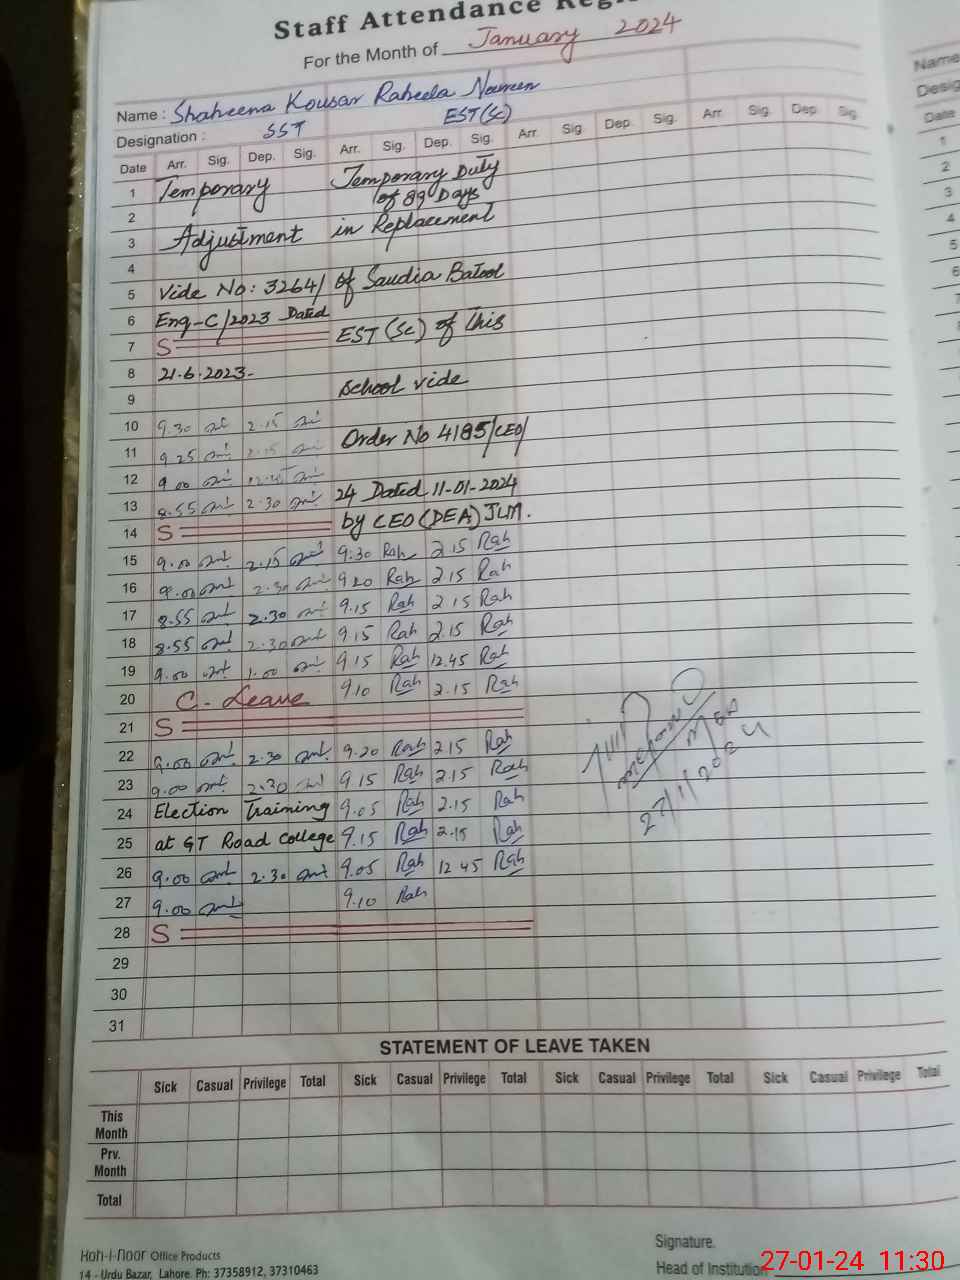 Staff Attendance Regi
For the Month of January 2024
Name : Shaheena Kousar Raheela Noureen
Designation : SST EST(Sc)
Date Arr. Sig. Dep. Sig. Arr. Sig. Dep. Sig. Arr. Sig. Dep. Sig. Arr. Sig. Dep. Sig.
1 Temporary Temporary Duty
2 of 89 Days
3 Adjustment in Replacement
4
5 Vide No: 3264/ of Saudia Batool
6 Eng-C/2023 Dated
7 S EST (Sc) of this
8 21.6.2023.
9 School vide
10 9.30 2.15
11 9.25 2.15 Order No 4185/CEO/
12 9.00
13 8.55 2.30 24 Dated 11-01-2024
14 S by CEO (DEA) JLM.
15 9.00 2.15 9.30 Rah 2.15 Rah
16 9.00 2.30 9.20 Rah 2.15 Rah
17 8.55 2.30 9.15 Rah 2.15 Rah
18 8.55 2.30 9.15 Rah 2.15 Rah
19 9.00 1.00 9.15 Rah 12.45 Rah
20 C. Leave 9.10 Rah 2.15 Rah
21 S
22 9.00 2.30 9.20 Rah 2.15 Rah
23 9.00 2.30 9.15 Rah 2.15 Rah
24 Election Training 9.05 Rah 2.15 Rah
25 at GT Road College 9.15 Rah 2.15 Rah
26 9.00 2.30 9.05 Rah 12.45 Rah
27 9.00 9.10 Rah
28 S
29
30
31
27/1/2024
STATEMENT OF LEAVE TAKEN
Sick Casual Privilege Total Sick Casual Privilege Total Sick Casual Privilege Total Sick Casual Privilege Total
This Month
Prv. Month
Total
Koh-i-noor Office Products
14 - Urdu Bazar, Lahore. Ph: 37358912, 37310463
Signature.
Head of Institution
27-01-24 11:30
Name
Desig
Date
1
2
3
4
5
6